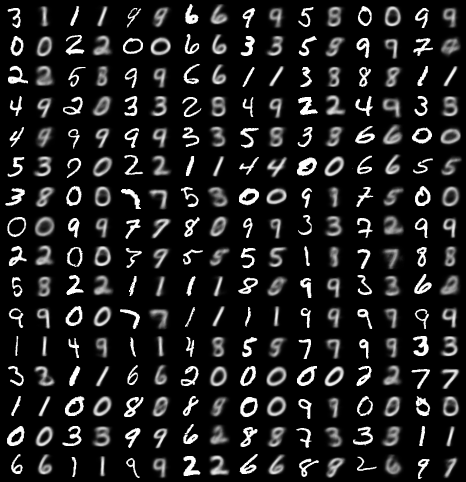 3 1 1 1 9 9 6 6 9 9 5 8 0 0 9 9
0 0 2 2 0 0 6 6 3 3 5 8 9 9 7 9
2 2 5 8 9 9 6 6 1 1 3 8 8 8 1 1
4 9 2 0 3 3 2 8 4 9 2 2 4 9 3 3
4 9 9 9 9 9 3 3 5 8 3 8 6 6 0 0
5 3 9 0 2 2 1 1 4 4 0 0 6 6 5 5
3 8 0 0 7 7 5 3 0 0 9 9 7 5 0 0
0 0 9 9 7 7 8 0 9 9 3 3 7 2 9 9
2 2 0 0 3 9 5 5 5 5 1 8 7 7 8 8
5 8 2 2 1 1 1 1 8 8 9 9 3 3 6 0
9 9 0 0 7 7 1 1 1 1 9 9 9 9 9 9
1 1 4 9 1 1 4 8 5 9 7 7 9 9 3 3
3 3 1 1 6 6 2 0 0 0 0 0 2 2 7 7
1 1 0 0 8 8 8 9 0 0 9 9 0 0 0 0
0 0 3 3 9 9 6 2 8 8 7 3 3 3 1 1
6 6 1 1 9 9 2 2 6 6 8 8 2 6 9 9